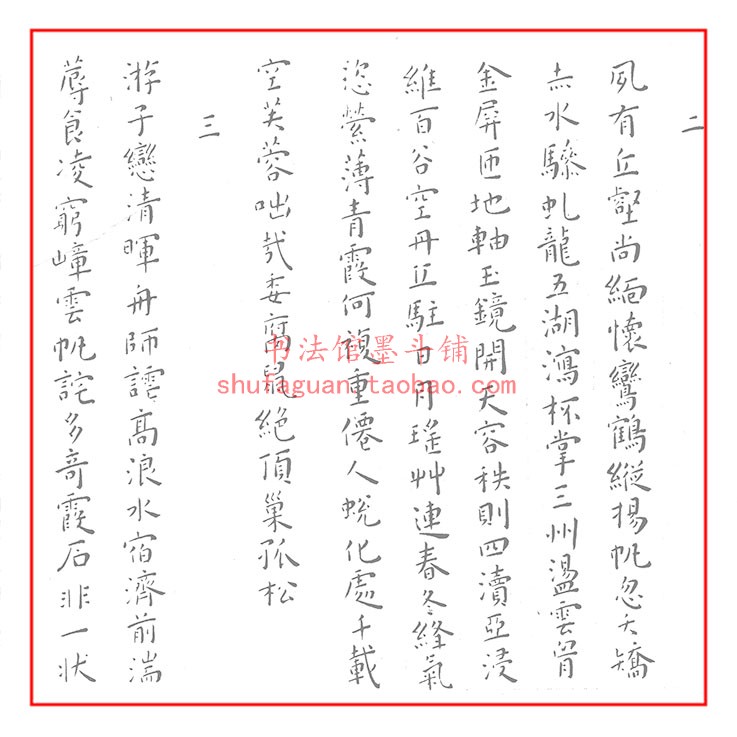 二
夙有丘壑尚緬懷鸞鶴縱揚帆忽夭矯
赤水驂虬龍五湖瀉杯掌三州盪雲胷
金屏匝地軸玉鏡開天容秩則四瀆亞浸
維百谷空丹丘駐日月瑤艸連春冬絳氣
恣縈薄青霞何複重僊人蛻化處千載
空芙蓉咄哉委腐鼠絕頂巢孤松
三
游子戀清暉舟師譁高浪水宿濟前湍
蓐食凌窮嶂雲帆詫多奇霞石非一狀
书法馆墨斗铺
shufaguan.taobao.com